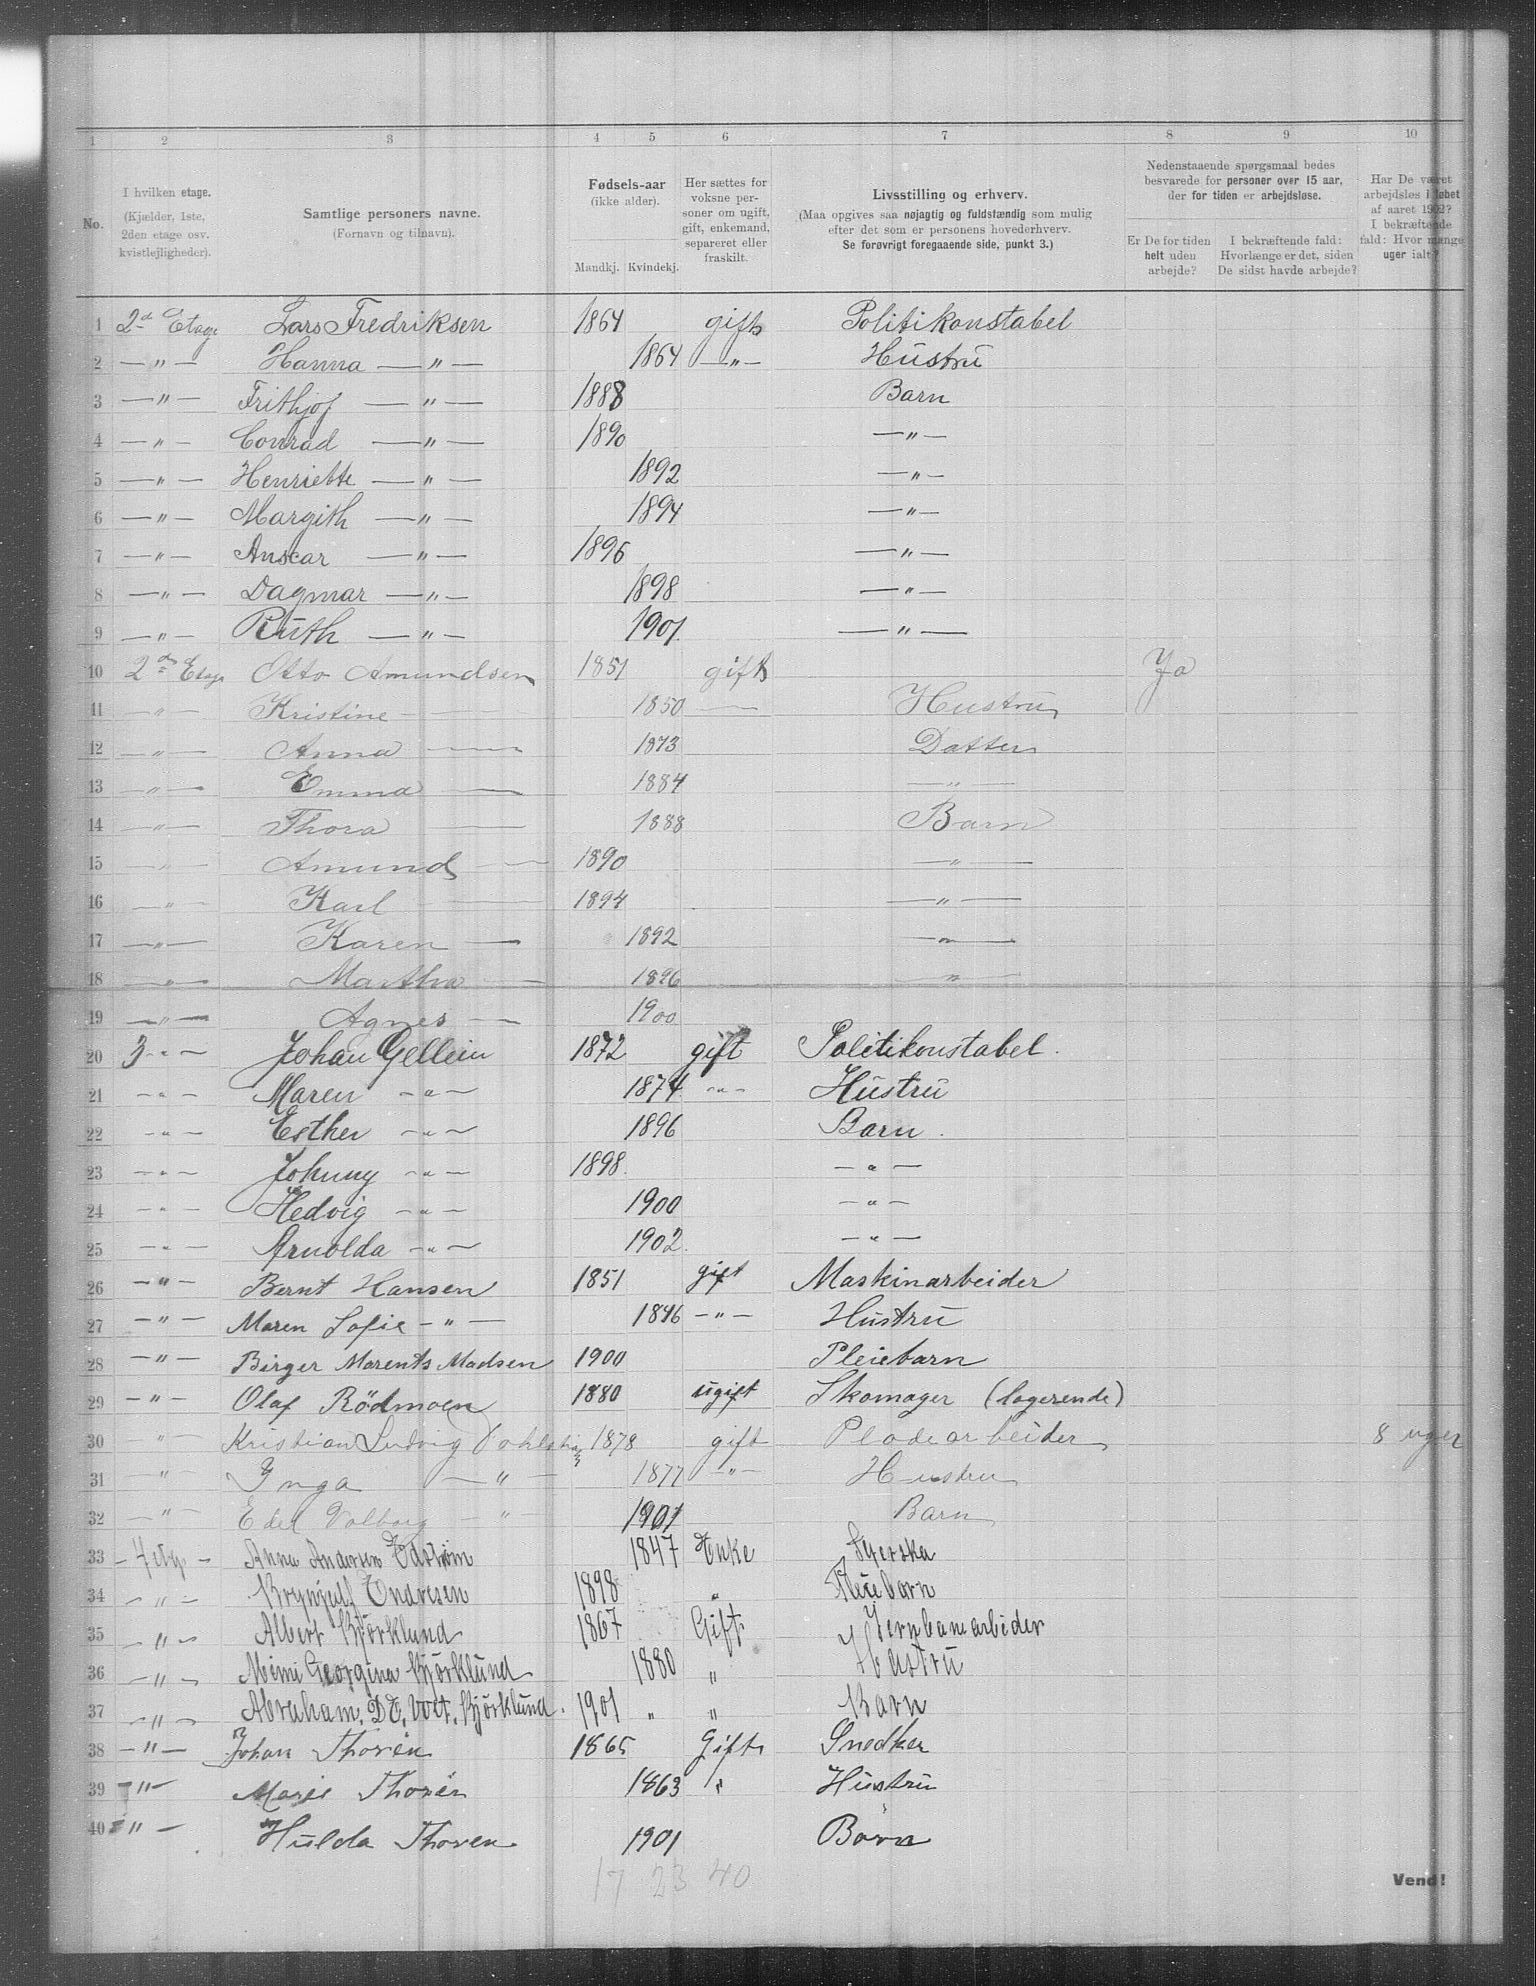 1 2 3 4 5 6 7 8 9 10
No.
I hvilken etage.
(Kjælder, 1ste,
2den etage osv.
kvistlejligheder).
Samtlige personers navne.
(Fornavn og tilnavn).
Fødsels-aar
(ikke alder).
Mandkj. Kvindekj.
Her sættes for
voksne per-
soner om ugift,
gift, enkemand,
separeret eller
fraskilt.
Livsstilling og erhverv.
(Maa opgives saa nøjagtig og fuldstændig som mulig
efter det som er personens hovederhverv.
Se forøvrigt foregaaende side, punkt 3.)
Nedenstaaende spørgsmaal bedes
besvarede for personer over 15 aar,
der for tiden er arbejdsløse.
Er De for tiden
helt uden
arbejde?
I bekræftende fald:
Hvorlænge er det, siden
De sidst havde arbejde?
Har De været
arbejdsløs i løbet
af aaret 1902?
I bekræftende
fald: Hvor mange
uger ialt?
1 2d Etage Lars Fredriksen 1864 gift Politikonstabel
2 — " — Hanna — " — 1864 — " — Hustru
3 — " — Frithjof — " — 1888 Barn
4 — " — Conrad — " — 1890 — " —
5 — " — Henriette — " — 1892 — " —
6 — " — Margith — " — 1894 — " —
7 — " — Anscar — " — 1896 — " —
8 — " — Dagmar — " — 1898 — " —
9 — " — Ruth — " — 1901 — " —
10 2den Etage Otto Amundsen 1851 gift Ja
11 — " — Kristine — 1850 — Hustru
12 — " — Anna — 1873 Datter
13 — " — Emma — 1884 — " —
14 — " — Thora — 1888 Barn
15 — " — Amund — 1890 — " —
16 — " — Karl — 1894 — " —
17 — " — Karen — 1892 — " —
18 — " — Martha — 1896 — " —
19 — " — Agnes — 1900
20 3 - " — Johan Gellein 1872 gift Politikonstabel.
21 - " - Maren - " - 1874 - " - Hustru
22 - " - Esther - " - 1896 Barn.
23 - " - Johnny - " - 1898. - " -
24 - " - Hedvig - " - 1900 - " -
25 - " - Arnolda - " - 1902. - " -
26 - " - Bernt Hansen 1851 gift Maskinarbeider
27 - " - Maren Sofie - " - 1846 - " - Hustru
28 - " - Birger Marents Madsen 1900 Pleiebarn
29 - " - Olaf Rödmoen 1880 ugift Skomager (logerende)
30 - " - Kristian Ludvig 1878 gift Pladearbeider 8 uger
31 - " - Ynga — " — 1877 - " - Hustru
32 - " - Edel Valborg - " - 1901 Barn
33 - 4 etg. - Anna Andersen Edström 1847 Enke Syerska
34 - " - Brynjulf Endresen 1898 " Pleiebarn
35 - " - Albert Björklund 1867 Gift Jernbanearbeider
36 - " - Mimi Georgina Björklund 1880 " Hustru
37 - " - Abraham. D.E. Björklund. 1901 " " Barn
38 - " - Johan Thorén 1865 Gift Snedker
39 - " - Marie Thorén 1863 " Hustru
40 - " - Hulda Thoren 1901 Barn
17 23 40
Vend!